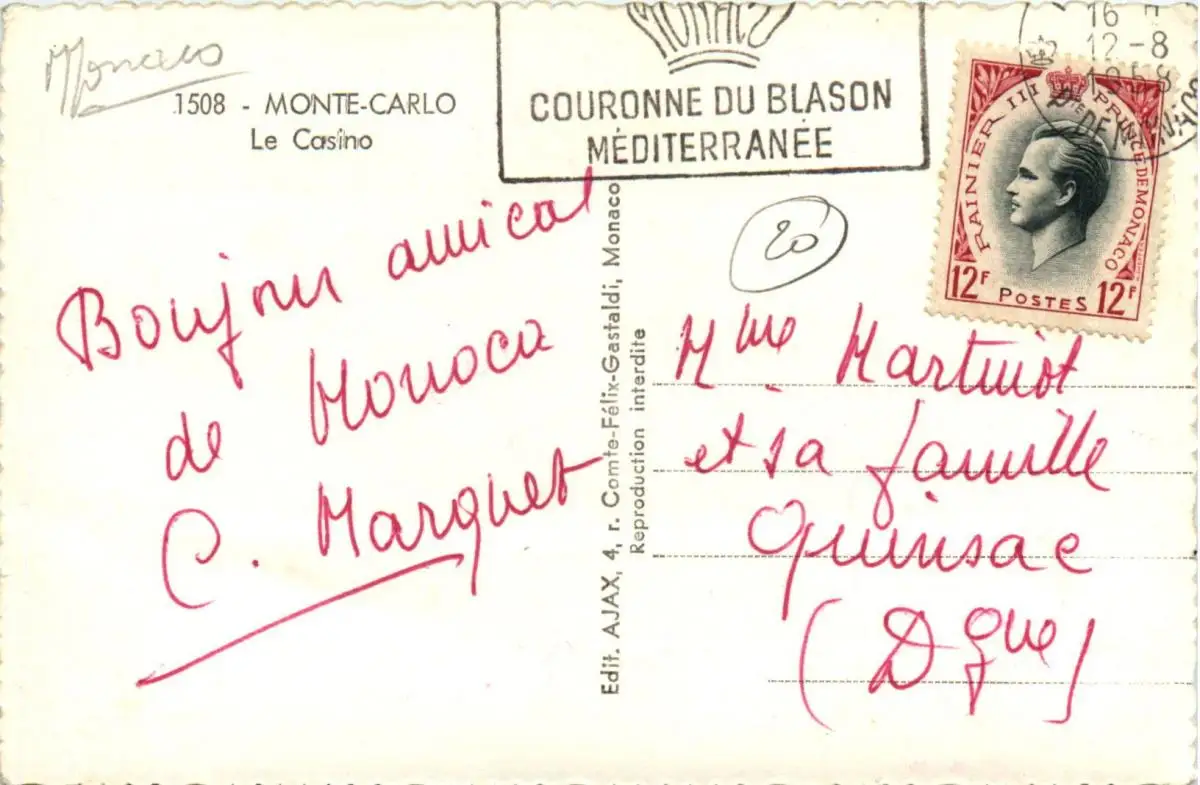 Monaco
1508 - MONTE-CARLO
Le Casino
MONACO
COURONNE DU BLASON
MÉDITERRANÉE
16 H
12-8
1958
RAINIER III PRINCE DE MONACO
12F POSTES 12F
20
Bonjour amical
de Monaco
C. Marquet
Edit. AJAX, 4, r. Comte-Félix-Gastaldi, Monaco
Reproduction interdite
Mme Martinot
et sa famille
Quinsac
(Dgne)